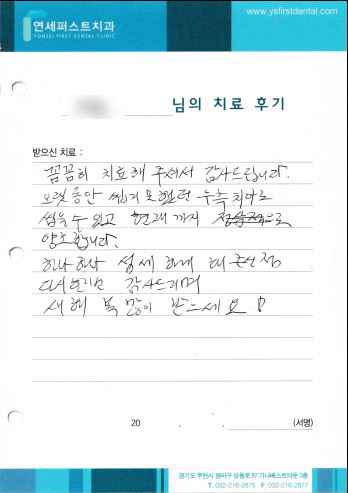 연세퍼스트치과
YONSEI FIRST DENTAL CLINIC
www.ysfirstdental.com
님의 치료 후기
받으신 치료 :
꼼꼼히 치료해 주셔서 감사드립니다.
오랫동안 씹지 못했던 우측 치아로
씹을 수 있고 현재까지 으로
양호합니다.
하나하나 섬세하게 해주신 점
다시한번 감사드리며
새해 복 많이 받으세요 !
20
(서명)
경기도 부천시 원미구 상동로 87 가나베스트타운 3층
T. 032-216-2875 F. 032-216-2877